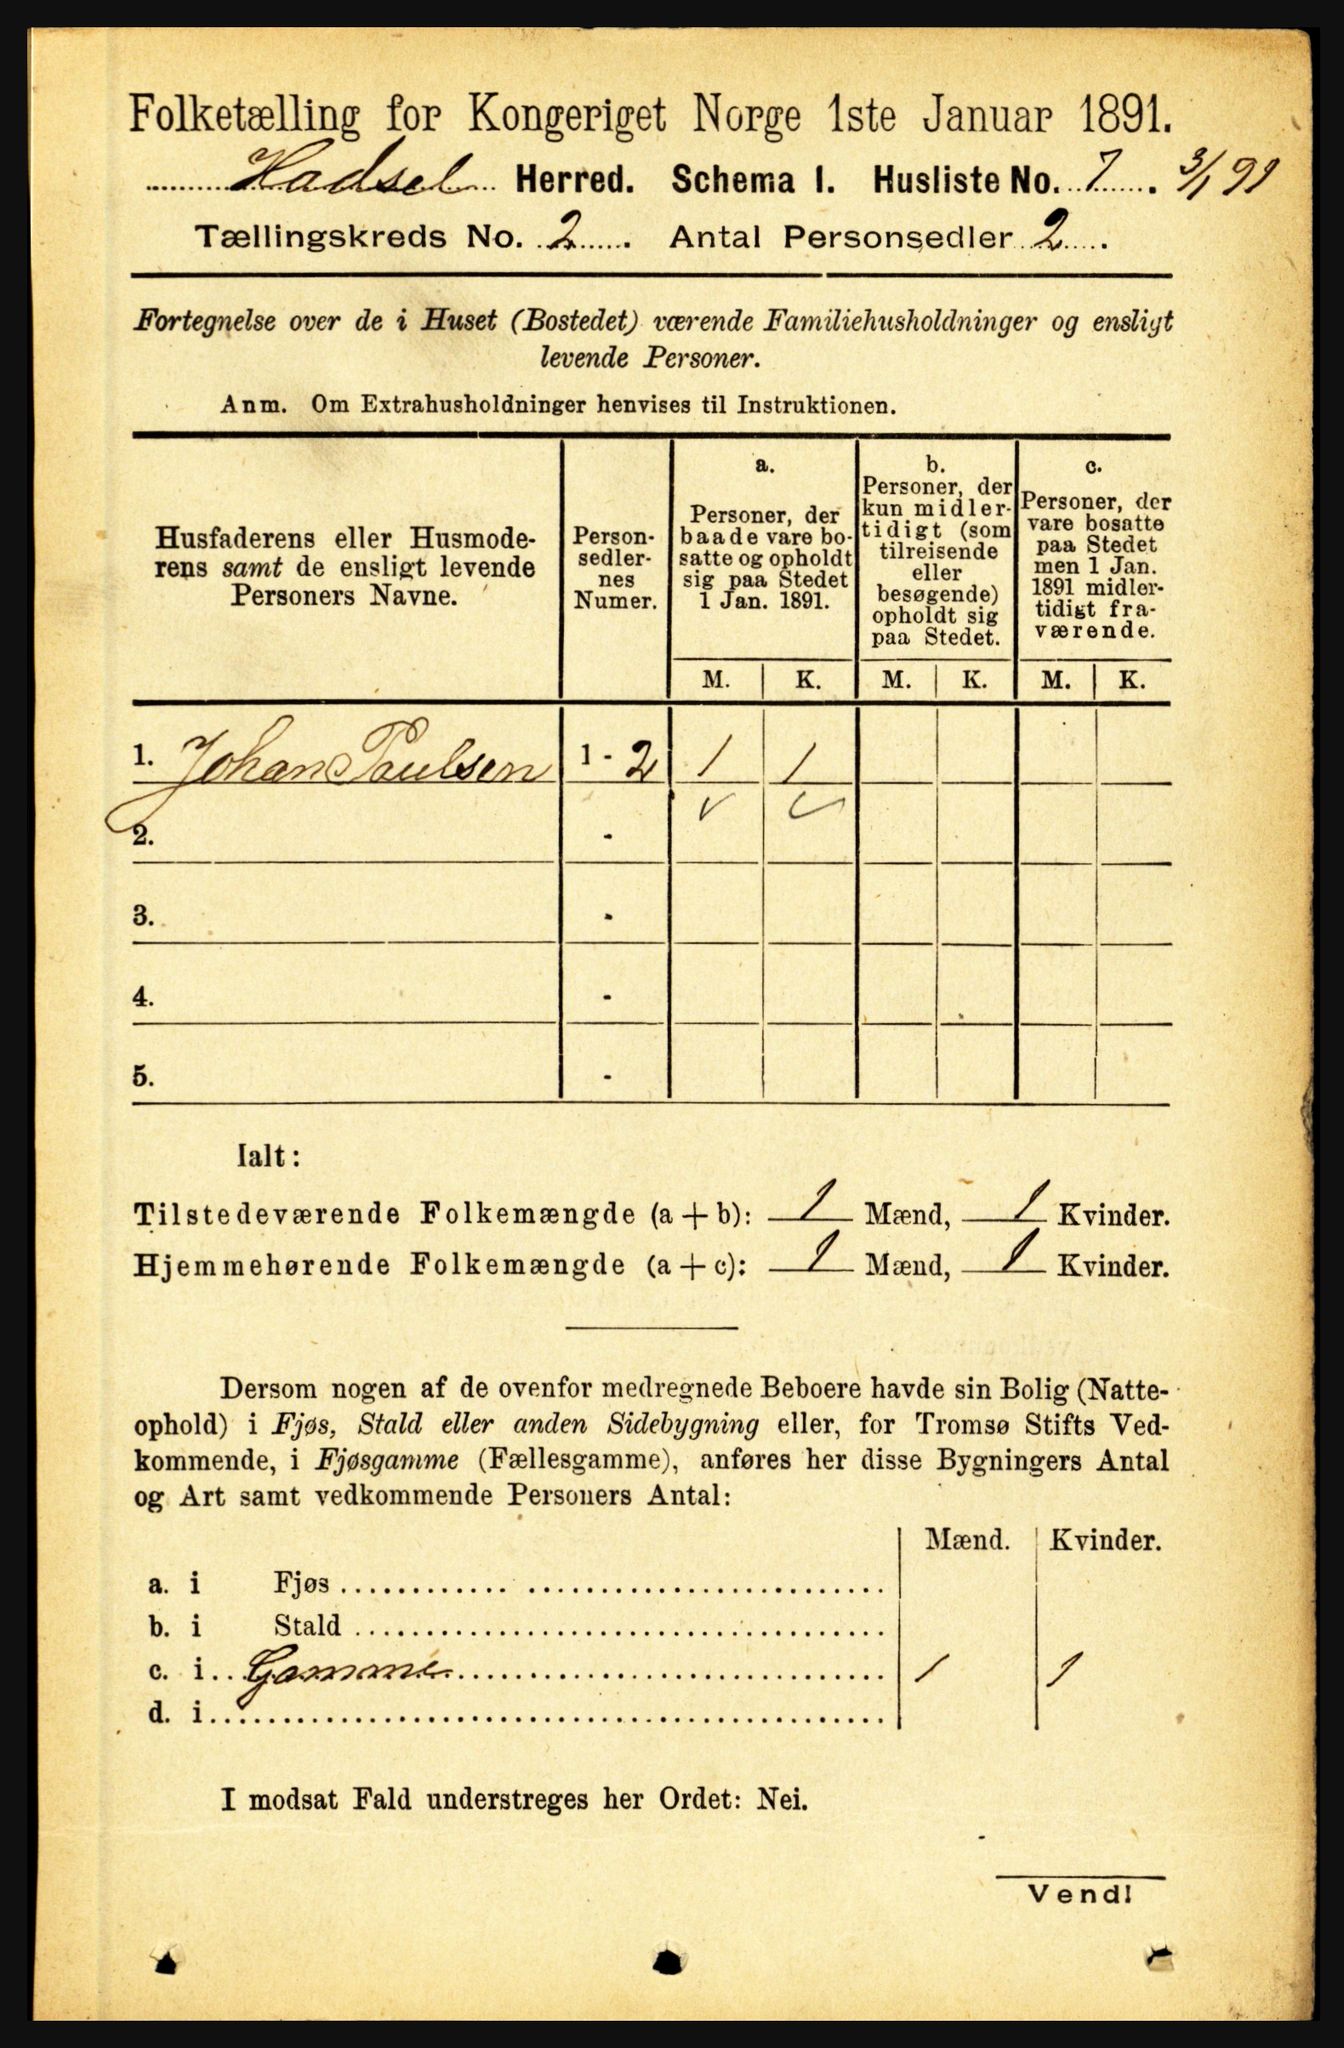 Folketælling for Kongeriget Norge 1ste Januar 1891.
Hadsel Herred. Schema I. Husliste No. 7. 3/1 91
Tællingskreds No. 2. Antal Personsedler 2.
Fortegnelse over de i Huset (Bostedet) værende Familiehusholdninger og ensligt
levende Personer.
Anm. Om Extrahusholdninger henvises til Instruktionen.
Husfaderens eller Husmode-
rens samt de ensligt levende
Personers Navne.
Person-
sedler-
nes
Numer.
a.
Personer, der
baade vare bo-
satte og opholdt
sig paa Stedet
1 Jan. 1891.
b.
Personer, der
kun midler-
tidigt (som
tilreisende
eller
besøgende)
opholdt sig
paa Stedet.
c.
Personer, der
vare bosatte
paa Stedet
men 1 Jan.
1891 midler-
tidigt fra-
værende.
M. K. M. K. M. K.
1. Johan Paulsen 1 - 2 1 1
2. -
3. -
4. -
5. -
Ialt:
Tilstedeværende Folkemængde (a + b): 1 Mænd, 1 Kvinder.
Hjemmehørende Folkemængde (a + c): 1 Mænd, 1 Kvinder.
Dersom nogen af de ovenfor medregnede Beboere havde sin Bolig (Natte-
ophold) i Fjøs, Stald eller anden Sidebygning eller, for Tromsø Stifts Ved-
kommende, i Fjøsgamme (Fællesgamme), anføres her disse Bygningers Antal
og Art samt vedkommende Personers Antal:
Mænd. Kvinder.
a. i Fjøs
b. i Stald
c. i Gamme 1 1
d. i
I modsat Fald understreges her Ordet: Nei.
Vend!